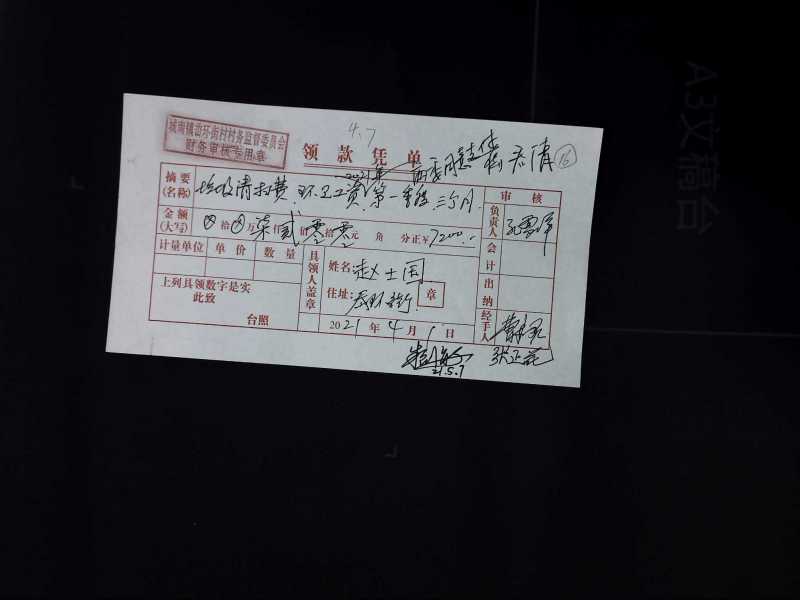 A3文稿台
4.7
城南镇峦环街村村务监督委员会
财务审核专用章
领款凭单
2021年
16
摘要
(名称)
垃圾清扫费 环卫工资 第一季度 三个月
审核
金额
(大写)
⊗拾⊗万柒仟贰佰零拾零元 角 分正¥7200.-
负责人
计量单位 单价 数量
具领人盖章
姓名: 赵士国
会计
上列具领数字是实
此致
住址:
章
出纳
台照
2021年4月1日
经手人
21.5.7
张正花